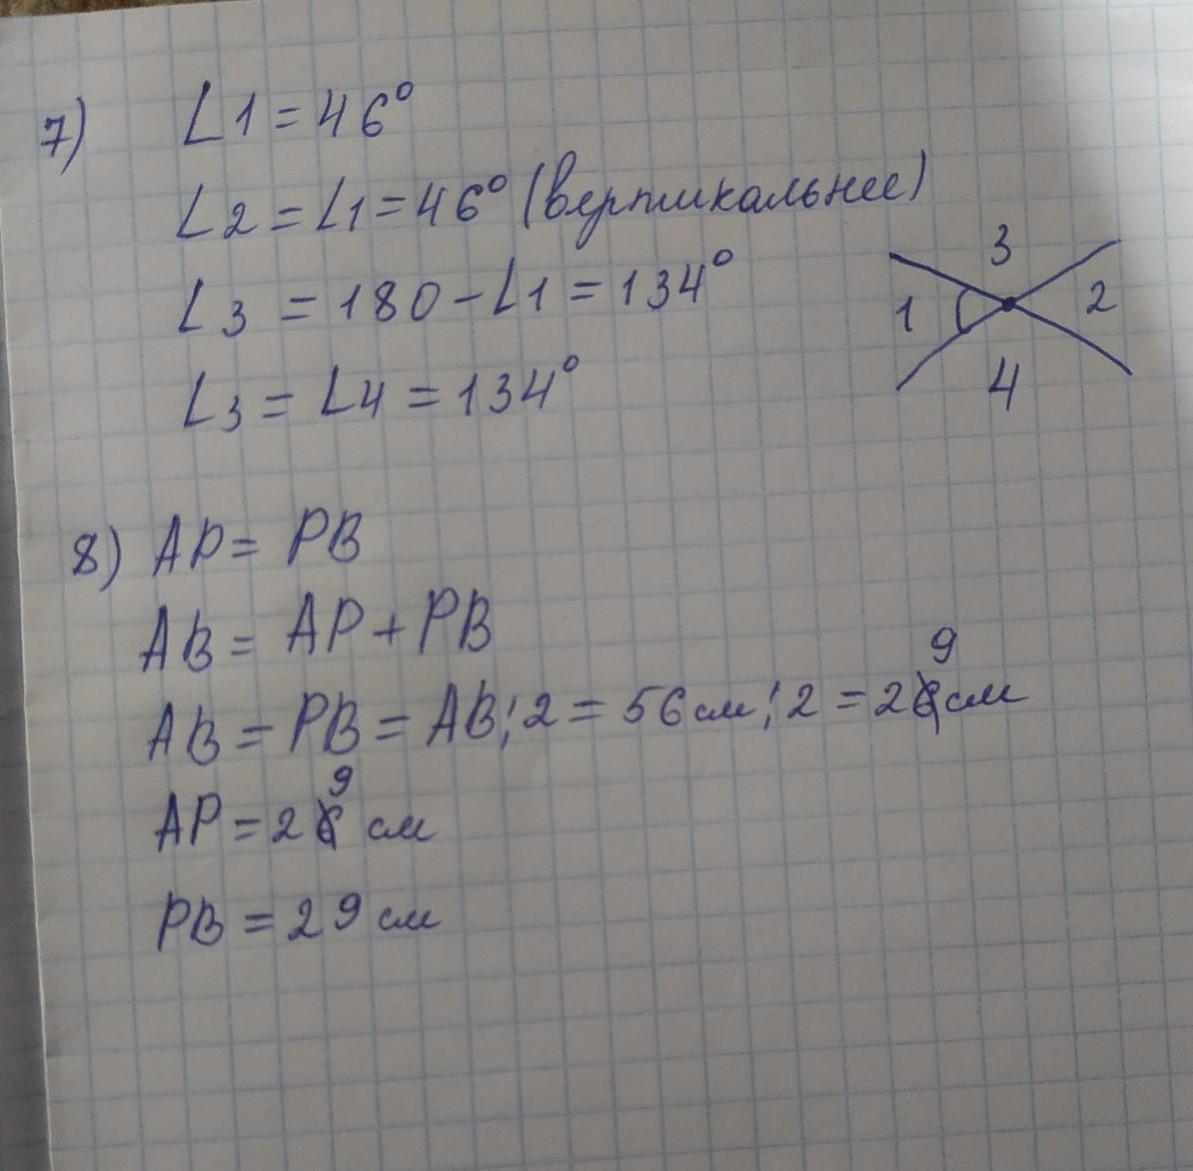 7) ∠1 = 46°
∠2 = ∠1 = 46° (вертикальнее)
∠3 = 180 - ∠1 = 134°
∠3 = ∠4 = 134°
3
1
2
4
8) AP = PB
AB = AP + PB
AB = PB = AB : 2 = 56 см : 2 = 29 см
AP = 29 см
PB = 29 см